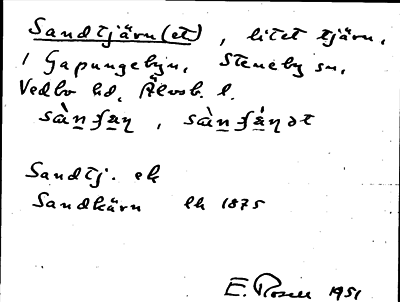 Sandtjärn(et), litet tjärn.
i Gapungebyn, Steneby sn,
Vedbo hd, Älvsb. l.
sàn ʃan, sàn ʃánət
Sandtj. ek
Sandkärn lk 1875
E. Rosell 1951